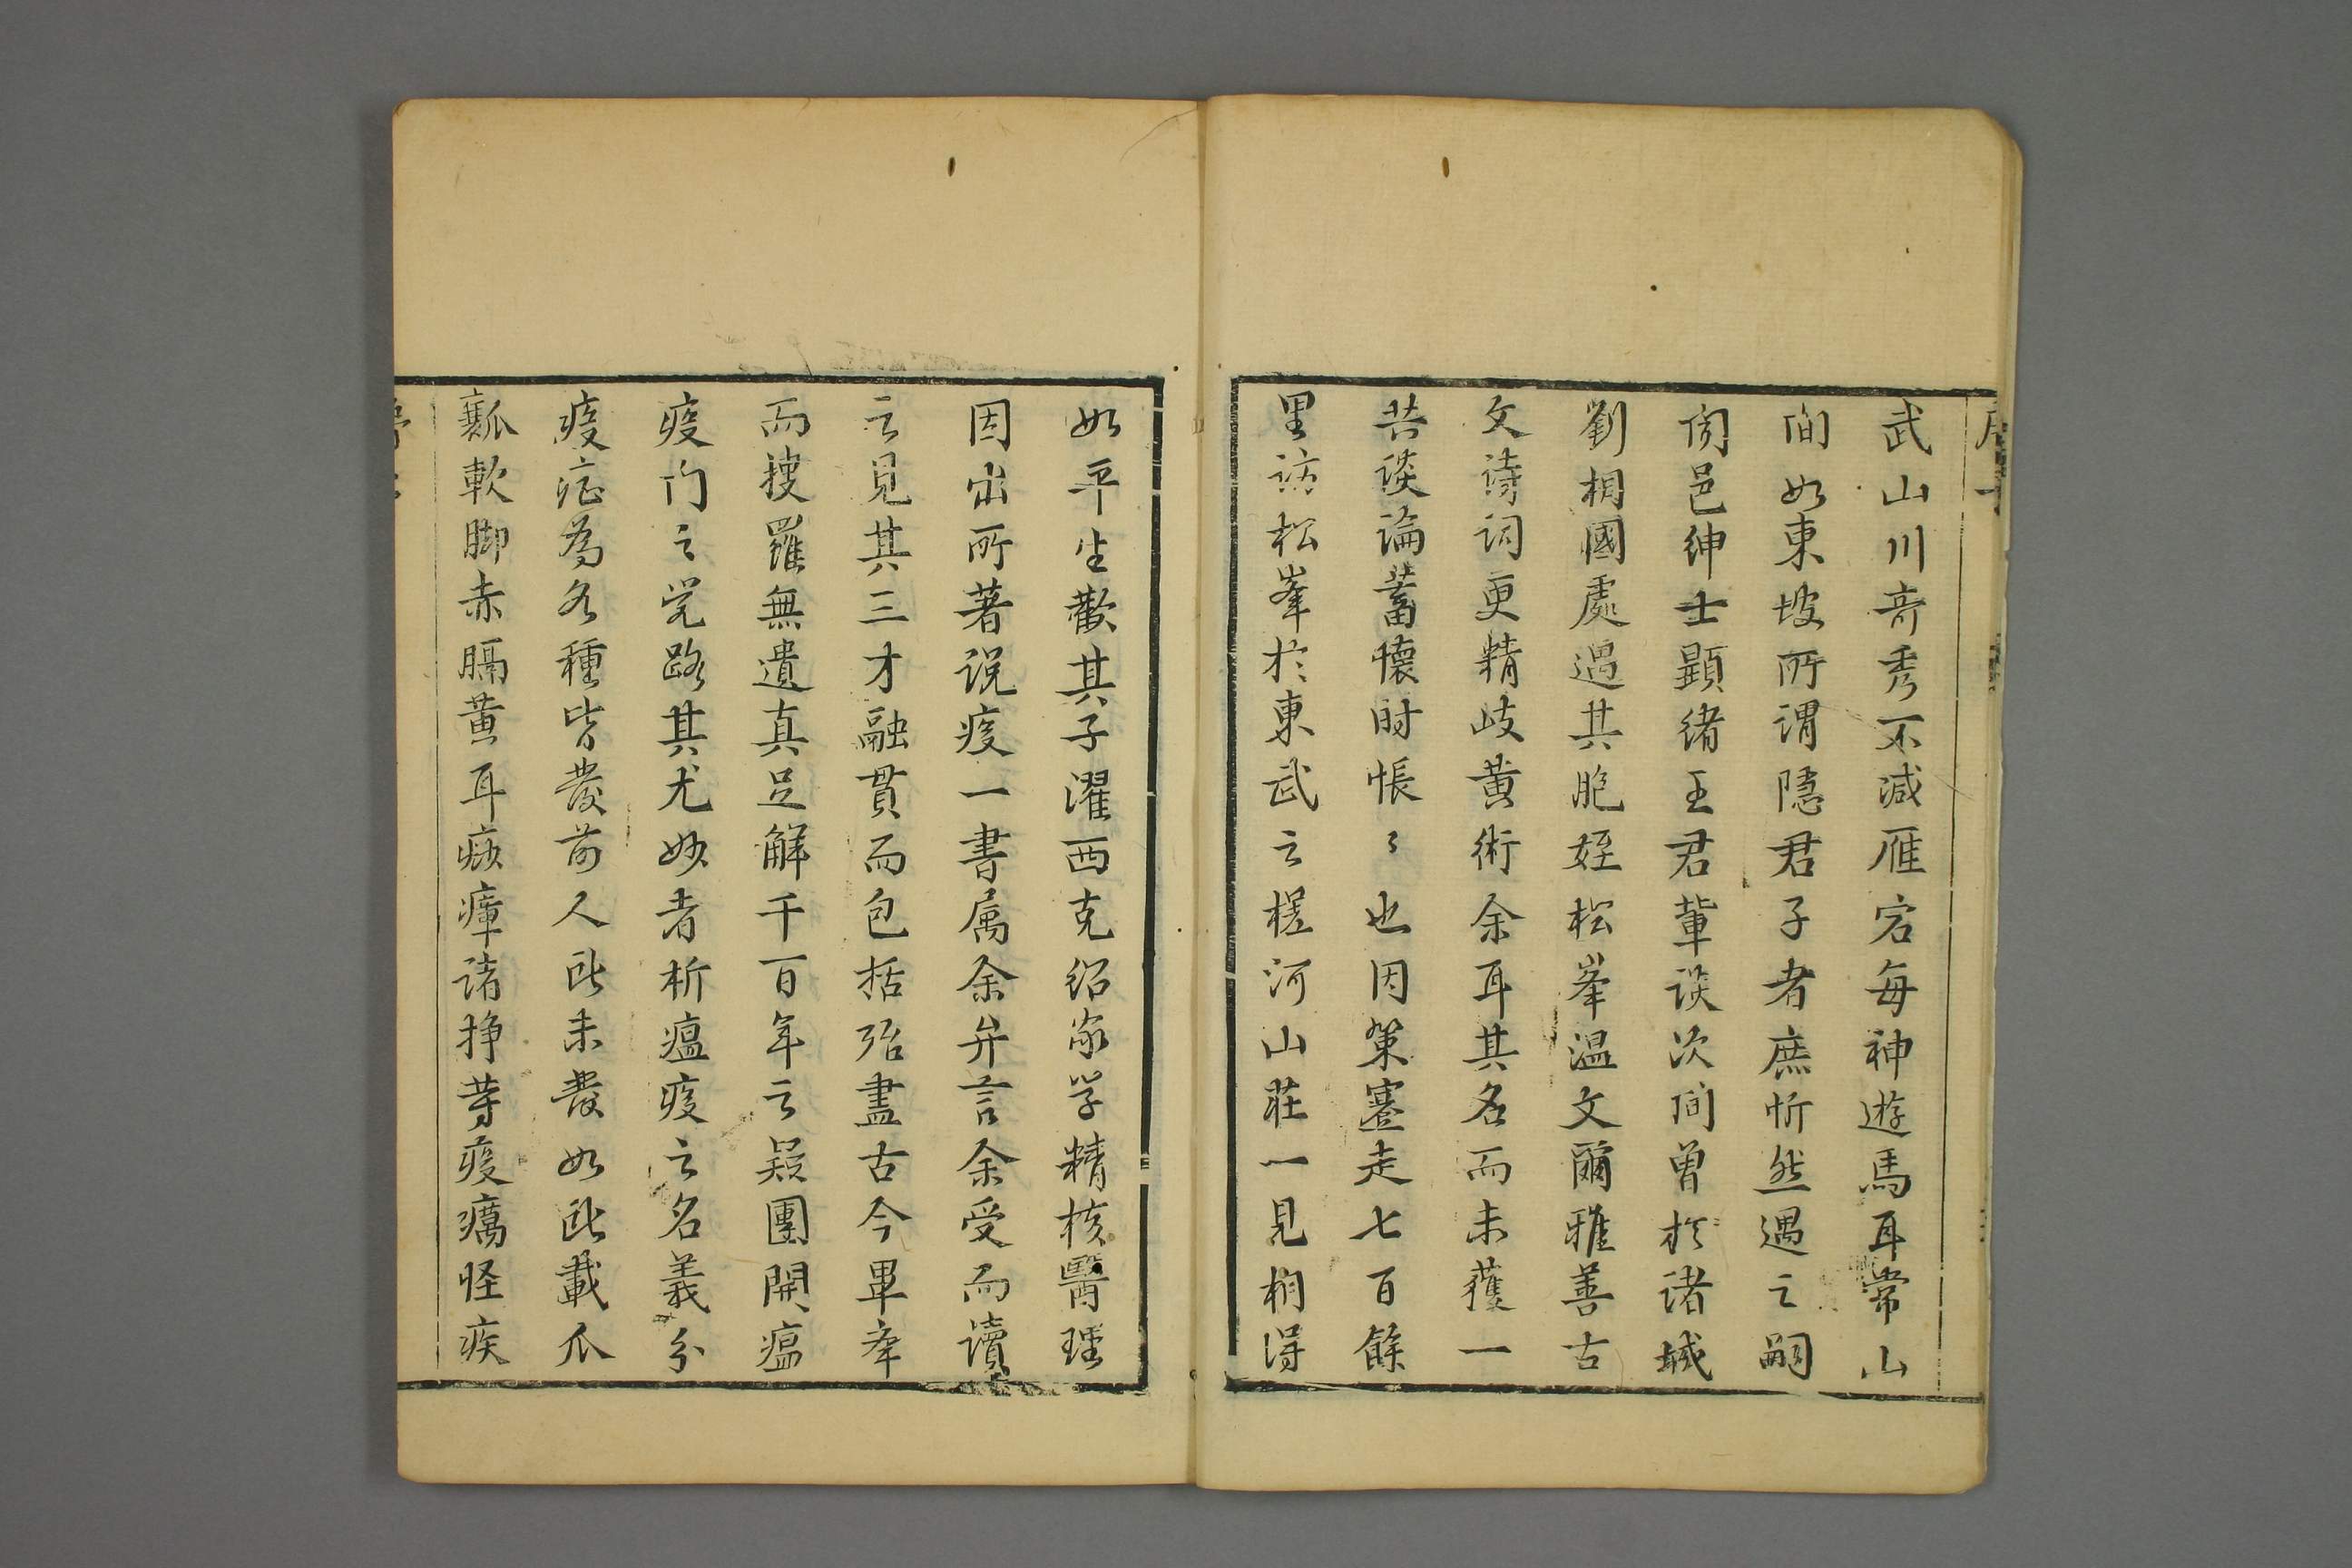 武山川竒秀不減雁宕每神遊馬耳常山
间如東坡所谓隱君子者庶忻然遇之嗣
闵邑绅士顕绪王君軰谈次间曾於诸城
劉相國處遇其胞姪松峯温文爾雅善古
文诗词更精岐黄術余耳其名而未獲一
共谈論蓄懷时悵〻也因策蹇走七百餘
里访松峯於東武之槎河山莊一見相得
如平生歡其子濯西克绍家学精核醫理
因出所著说疫一書属余弁言余受而讀
之見其三才融貫而包括殆盡古今畢牽
而搜羅無遺真足解千百年之疑團開瘟
疫门之覚路其尤妙者析瘟疫之名義分
疫症為各種皆發前人所未發如所載瓜
瓤軟脚赤膈黄耳痧瘴诸挣䓁疫癘怪疾